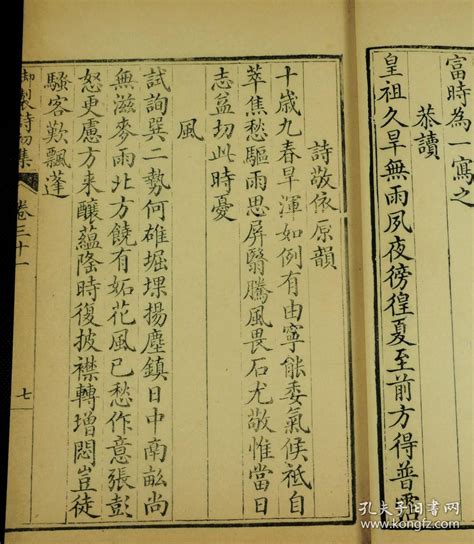 富時為一寫之
恭讀
皇祖久旱無雨夙夜徬徨夏至前方得普霑
詩敬依原韻
十歲九春旱渾如例有由寧能委氣候祗自
萃焦愁驅雨思屏翳騰風畏石尤敬惟當日
志益切此時憂
風
試詢巽二勢何雄堀堁揚塵鎮日中南畝尚
無滋麥雨北方饒有妬花風已愁作意張彭
怒更慮方來釀蘊隆時復披襟轉增悶豈徒
騷客歎飄蓬
御製詩初集 卷三十一 七
孔夫子旧书网
www.kongfz.com